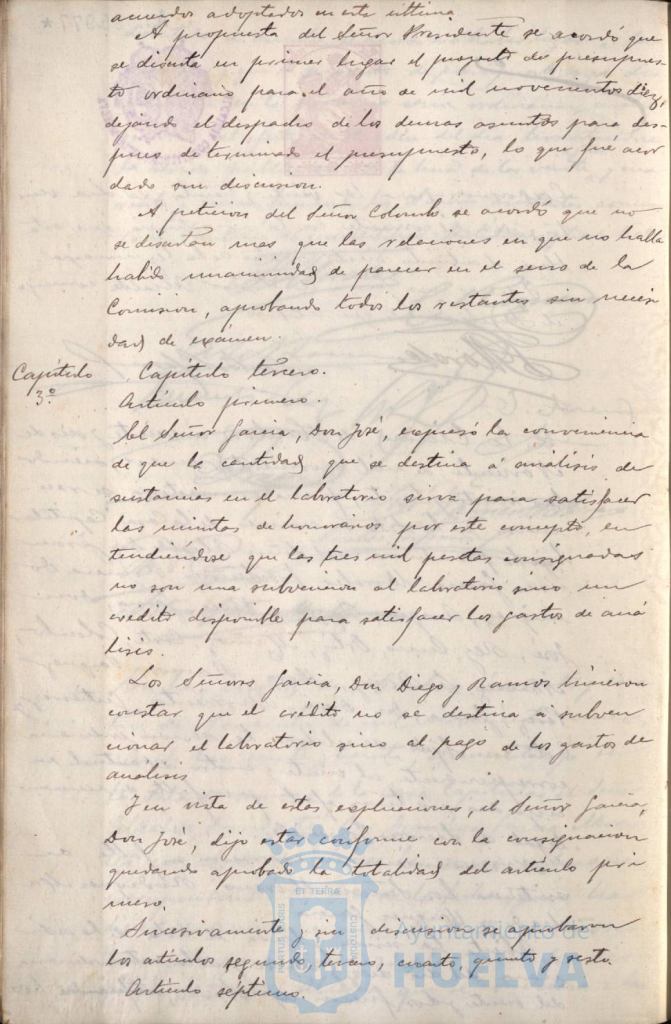 acuerdos adoptados en esta última
A propuesta del Señor Presidente se acordó que
se discuta en primer lugar el proyecto de presupues-
to ordinario para el año de mil novecientos diez,
dejando el despacho de los demas asuntos para des-
pues de terminado el presupuesto, lo que fué acor
dado sin discusion.
A peticion del Señor Colombo se acordó que no
se discutan mas que las relaciones en que no halla
habido unanimidad de parecer en el seno de la
Comision, aprobando todos los restantes sin necesi
dad de exámen.
Capítulo 3.º
Capítulo tercero.
Artículo primero.
El Señor Garcia, Don José, expresó la conveniencia
de que la cantidad que se destina á análisis de
sustancias en el laboratorio sirva para satisfacer
las minutas de honorarios por este concepto, en
tendiéndose que las tres mil pesetas consignadas
no son una subvencion al laboratorio sino un
crédito disponible para satisfacer los gastos de aná
lisis.
Los Señores Garcia, Don Diego y Ramos hicieron
constar que el crédito no se destina á subven
cionar el laboratorio sino al pago de los gastos de
análisis
Y en vista de estas explicaciones, el Señor Garcia,
Don José, dijo estar conforme con la consignacion
quedando aprobado la totalidad del artículo pri
mero.
Sucesivamente y sin discusion se aprobaron
los artículos segundo, tercero, cuarto, quinto y sesto.
Artículo séptimo.
Ayuntamiento de
HUELVA